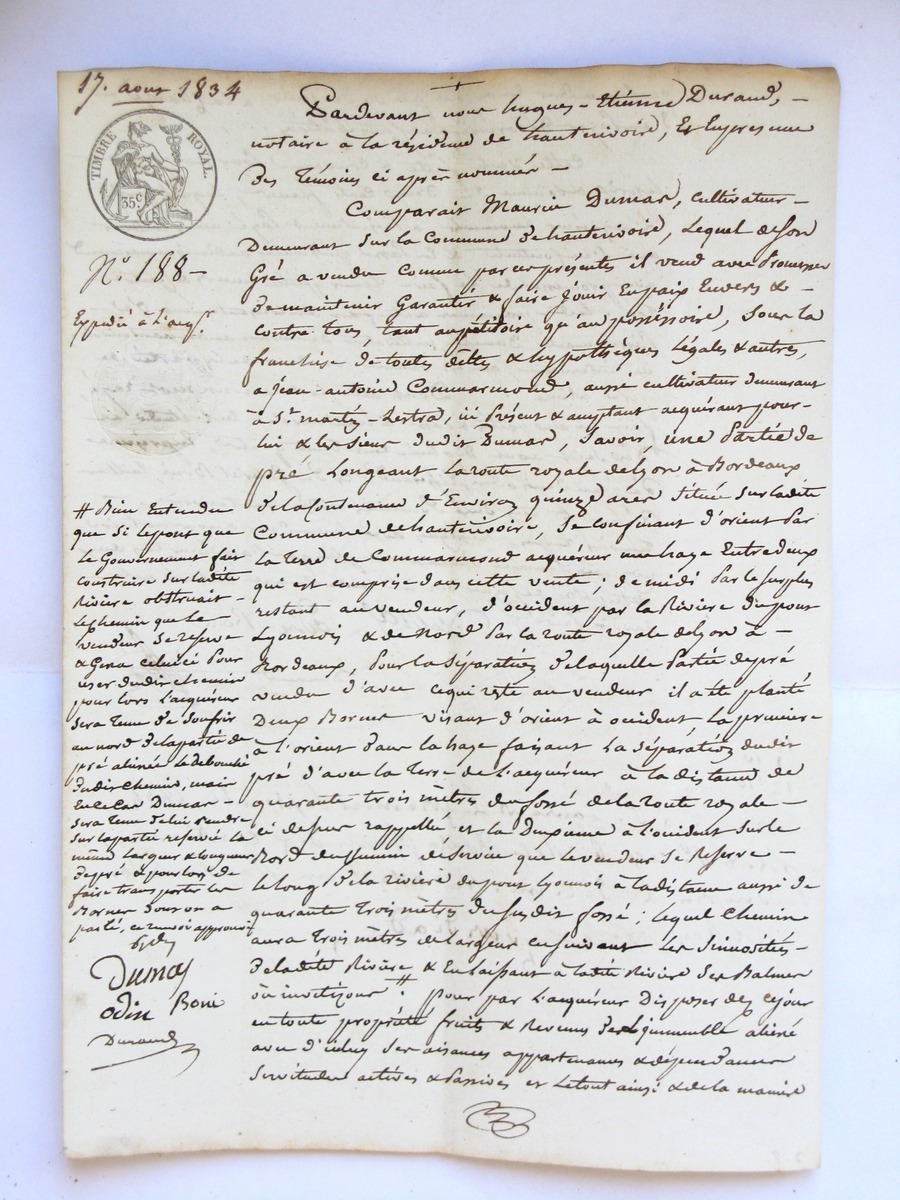 17. aout 1834
TIMBRE ROYAL.
35c
N.o 188 -
Expédié à l'acq.r
Pardevant nous hugues-Etiénne Durand, -
notaire à la résidence de hauterivoire, Et En presence
Des Témoins ci après nommés -
Comparait Maurice Dumas, cultivateur -
Demeurant sur la Commune d'hauterivoire, Lequel de son
Gré a vendu comme par ces présentes il vend avec Promesse
de maintenir Garantir & faire Jouir En paix Envers & -
contre tous, tant au pétitoire qu'au posséssoire, sous la
franchise de toutes dêttes & hypothèques légales & autres,
a jean-antoine Commarmond, aussi cultivateur demeurant
à St. martin-Lestra, ici Présent & acceptant acquérant pour -
lui & les siens dudit Dumas, Savoir, une Partie de
pré Longeant la route royale de lyon à Bordeaux
de la Contenance d'Environ quinze ares située sur ladite
Commune de hauterivoire, Se confinant d'orient Par
la Terre de Commarmond acquéreur une haye Entredeux
qui est comprise dans cette vente; de midi Par le surplus
restant au vendeur, d'occident par la Rivière du pont
Lyonnois & de Nord Par la route royale de lyon à -
Bordeaux, Pour la séparation de laquelle Partie de pré
vendu d'avec ce qui reste au vendeur il a été planté
Deux Bornes visant d'orient à occident La premiere
à l'orient dans la haye faisant La séparation dudit
pré d'avec la Terre de L'acquéreur à la distance de
quarante trois mètres du fossé de la route royale -
ci dessus rappellé et la Deuxieme à l'occident sur le
Nord du chemin de service que le vendeur se Reserve -
le long de la rivière du pont Lyonnois à la distance aussi de
quarante trois mètres du susdit fossé; lequel Chemin
aura Trois mètres de Largeur en suivant les sinuosités -
de ladite Rivière & En laissant à ladite Rivière ses Balmes
#. Pour par L'acquéreur Disposer dès ce jour
en toute propriété fruits & Revenus de l'immeuble aliéné
avec d'icelui ses aisances appartenances & dépendances
servitudes actives & Passives et Le tout ainsi & de la manière
# Bien Entendu
que si le pont que
Le Gouvernement fait
construire sur ladite
Rivière obstruait -
Le chemin que Le
vendeur se reserve
& Gena celui ci Pour
user dudit chemin
pour lors L'acquéreur
sera Tenu de souffrir
au nord de la partie de
pré alienée le debouché
dudit Chemin, mais
En ce Cas Dumas -
sera Tenu de lui rendre
sur la partie reservée la
même Largeur & longueur
de pré & pour lors de
faire transporter les
Bornes dont on a
parlé, ce renvoi approuvé
Dumas
odin Boni
Durand